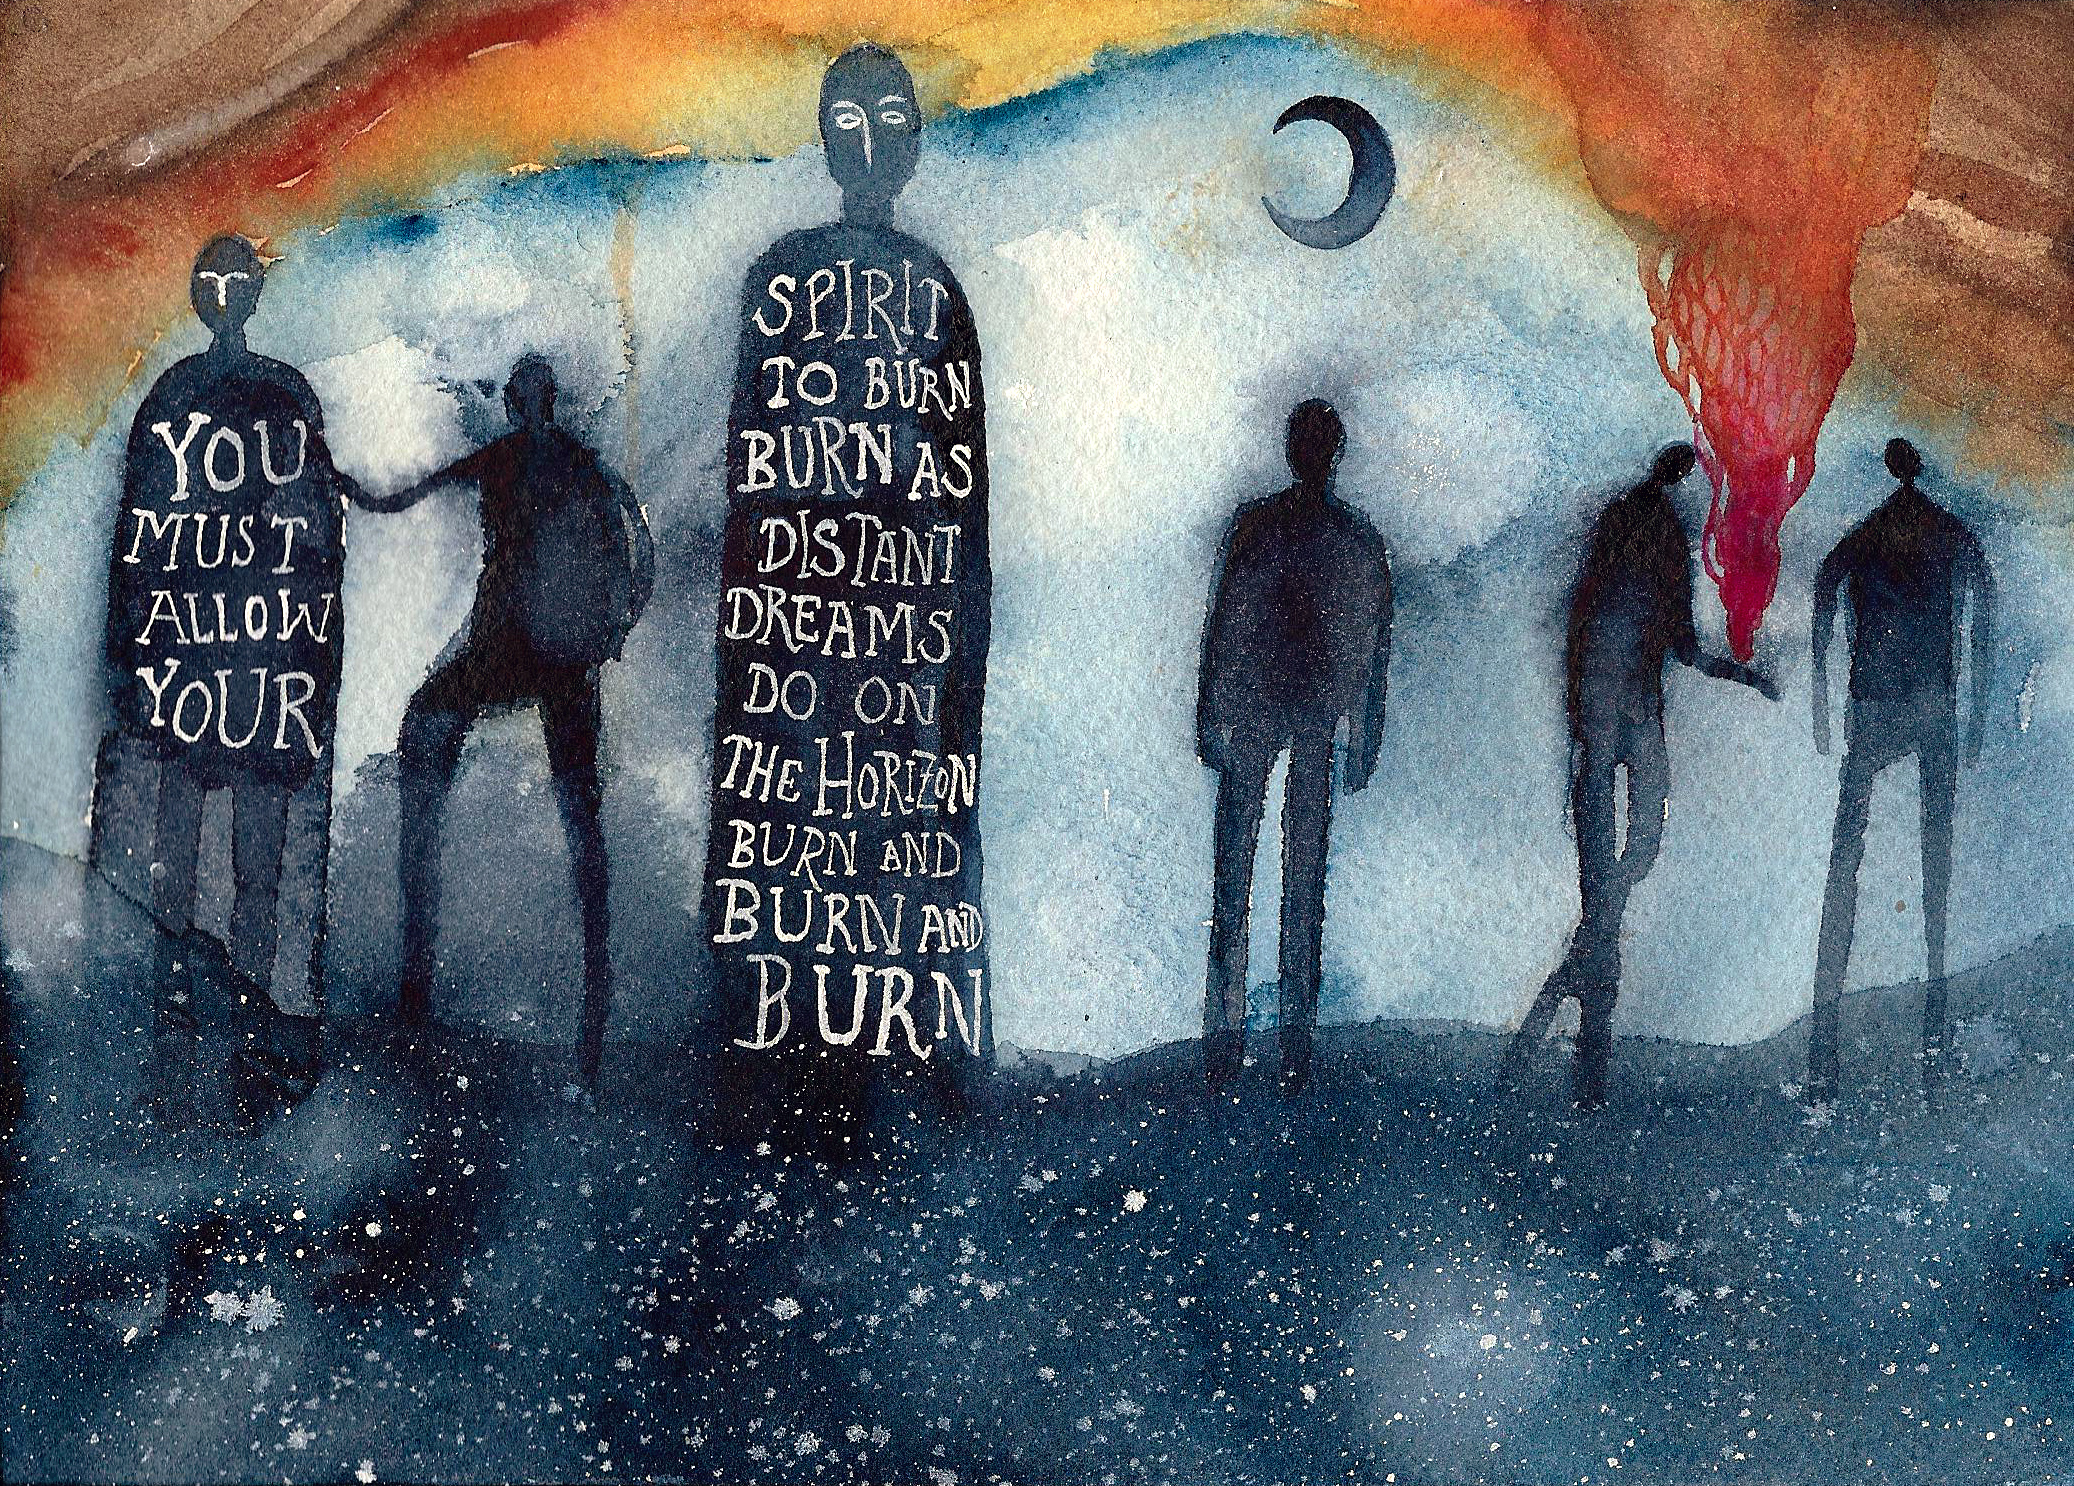 YOU
MUST
ALLOW
YOUR
SPIRIT
TO BURN
BURN AS
DISTANT
DREAMS
DO ON
THE HORIZON
BURN AND
BURN AND
BURN